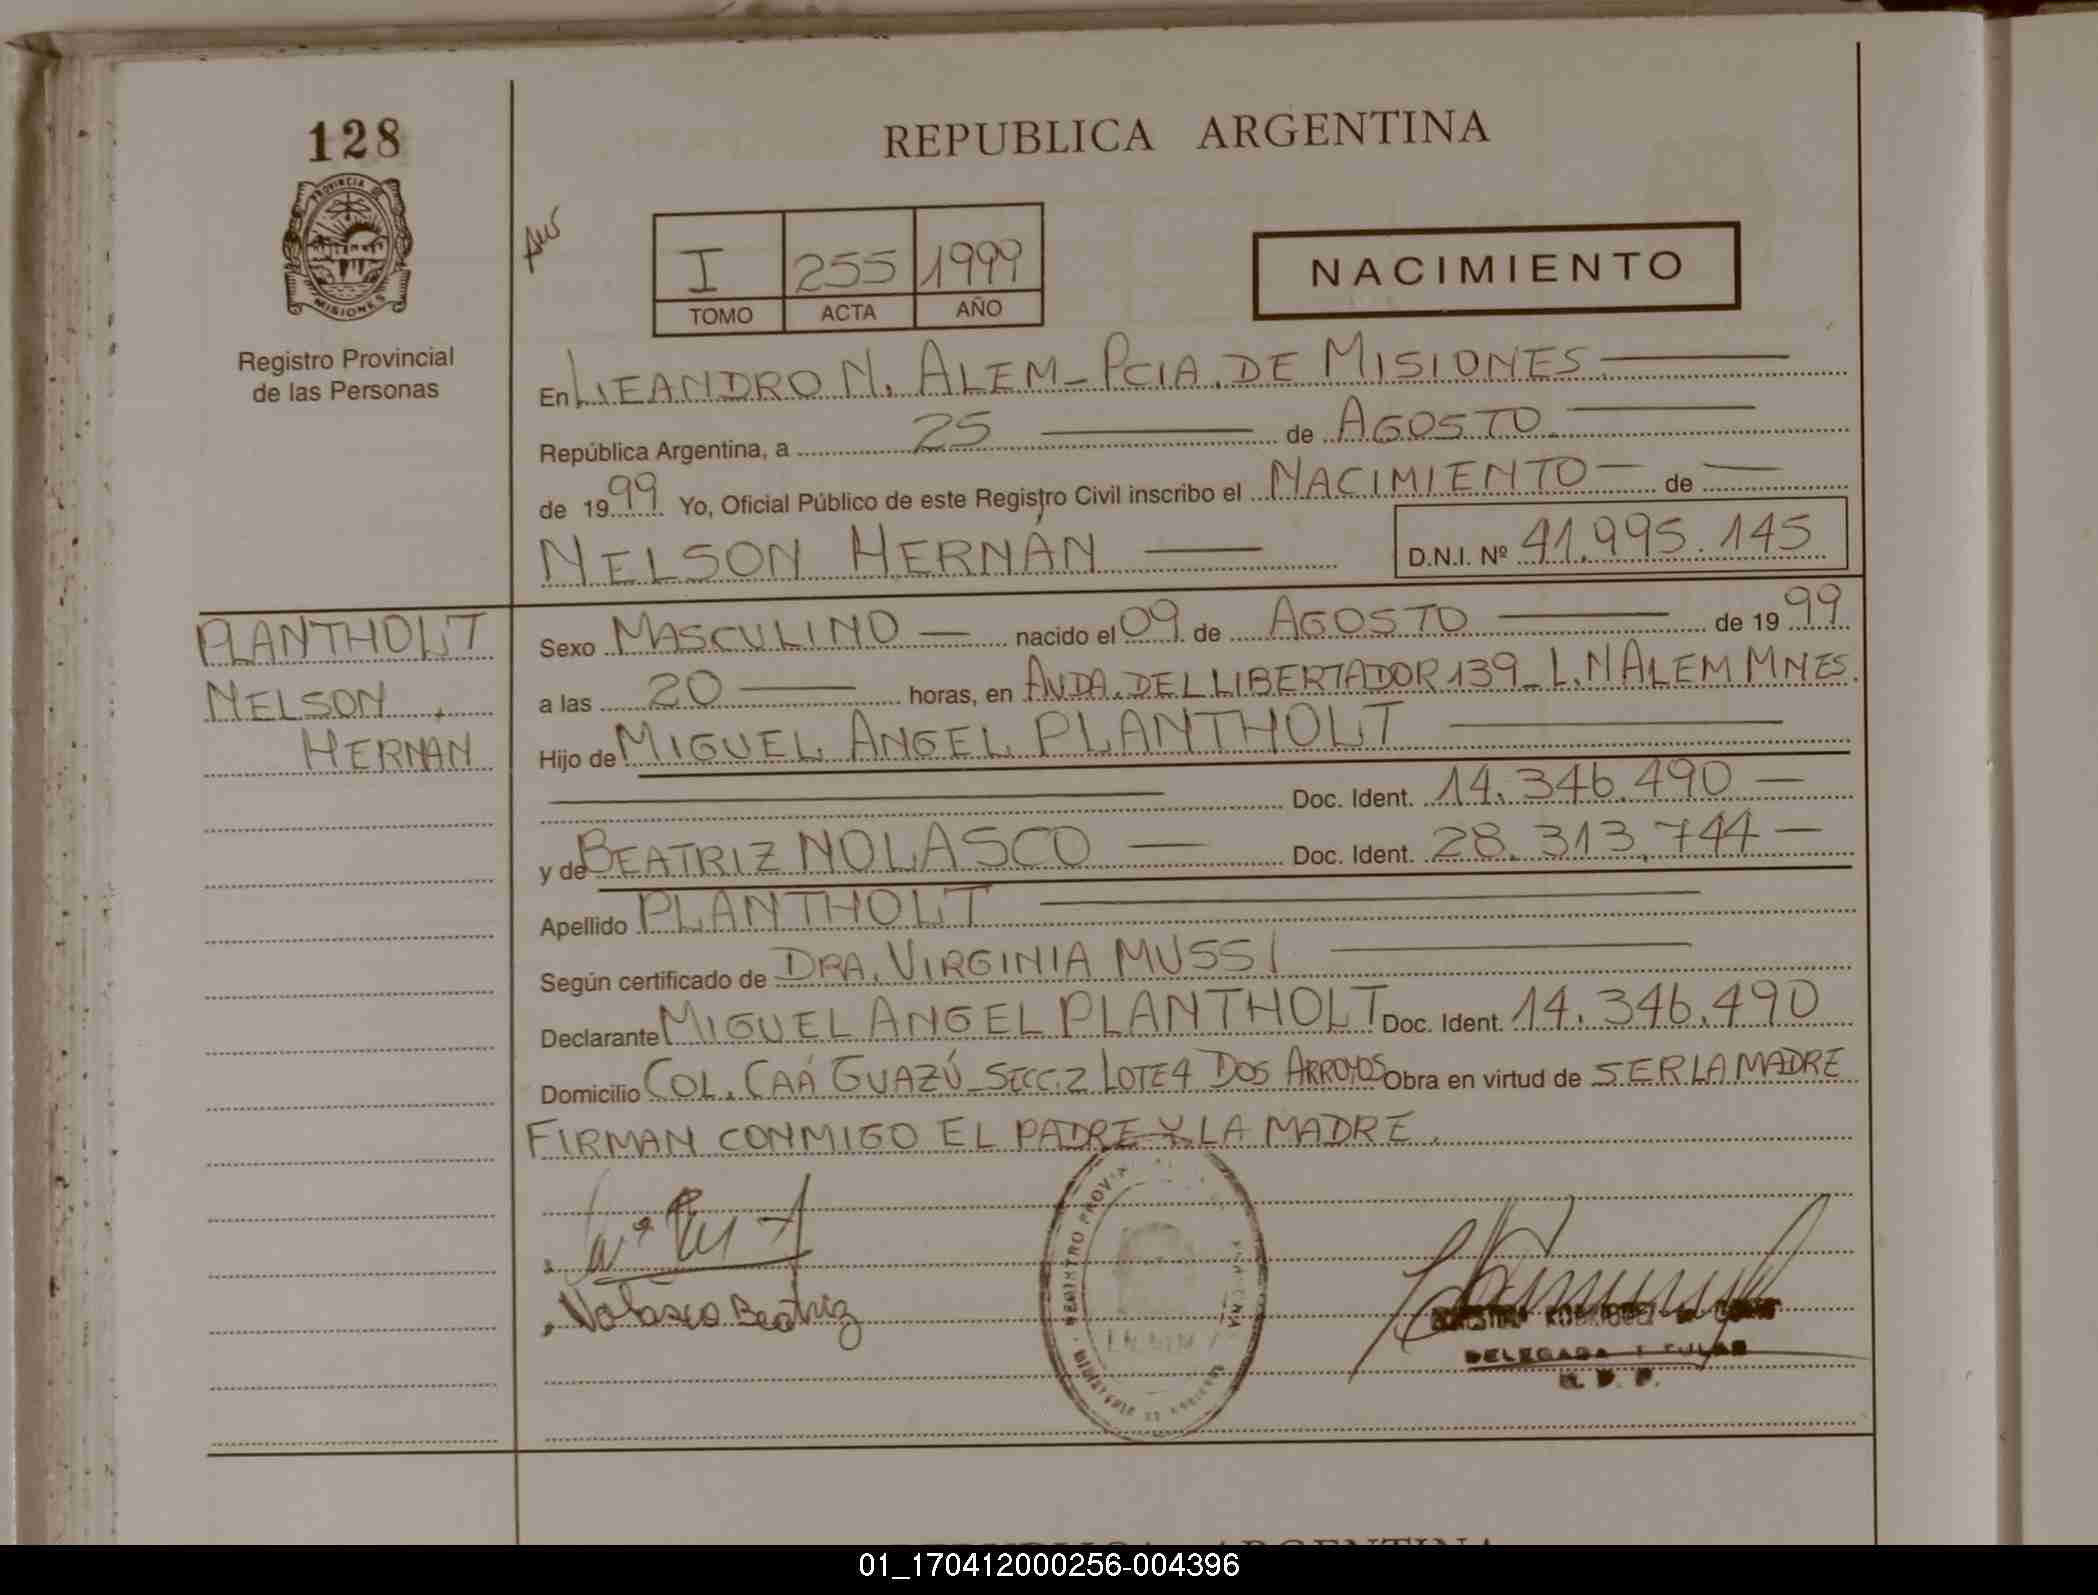 128
PROVINCIA DE
MISIONES
Registro Provincial
de las Personas
REPUBLICA ARGENTINA
I 255 1999
TOMO ACTA AÑO
NACIMIENTO
En LEANDRO N. ALEM - PCIA. DE MISIONES
República Argentina, a 25 de AGOSTO
de 1999 Yo, Oficial Público de este Registro Civil inscribo el NACIMIENTO de
NELSON HERNÁN D.N.I. Nº 41.995.145
PLANTHOLT
NELSON
HERNAN
Sexo MASCULINO nacido el 09 de AGOSTO de 1999
a las 20 horas, en AVDA. DEL LIBERTADOR 139 - L.N ALEM MNES.
Hijo de MIGUEL ANGEL PLANTHOLT
Doc. Ident. 14.346.490
y de BEATRIZ NOLASCO Doc. Ident. 28.313.744
Apellido PLANTHOLT
Según certificado de DRA. VIRGINIA MUSSI
Declarante MIGUEL ANGEL PLANTHOLT Doc. Ident. 14.346.490
Domicilio COL. CAÁ GUAZÚ - SECC. 2 LOTE 4 DOS ARROYOS Obra en virtud de SER LA MADRE
FIRMAN CONMIGO EL PADRE Y LA MADRE.
Nolasco Beatriz
DELEGADA TITULAR
R. P. P.
REPUBLICA ARGENTINA
01_170412000256-004396